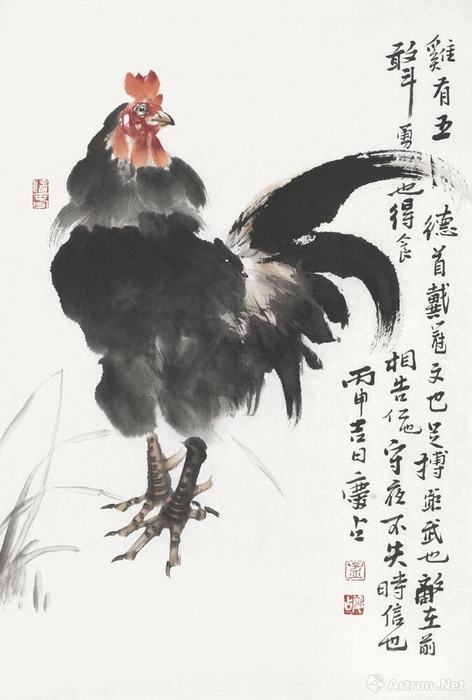 雞有五德首戴冠文也足搏距武也敵在前
敢斗勇也得食相告仁也守夜不失時信也
丙申吉日慶占
Artron.Net